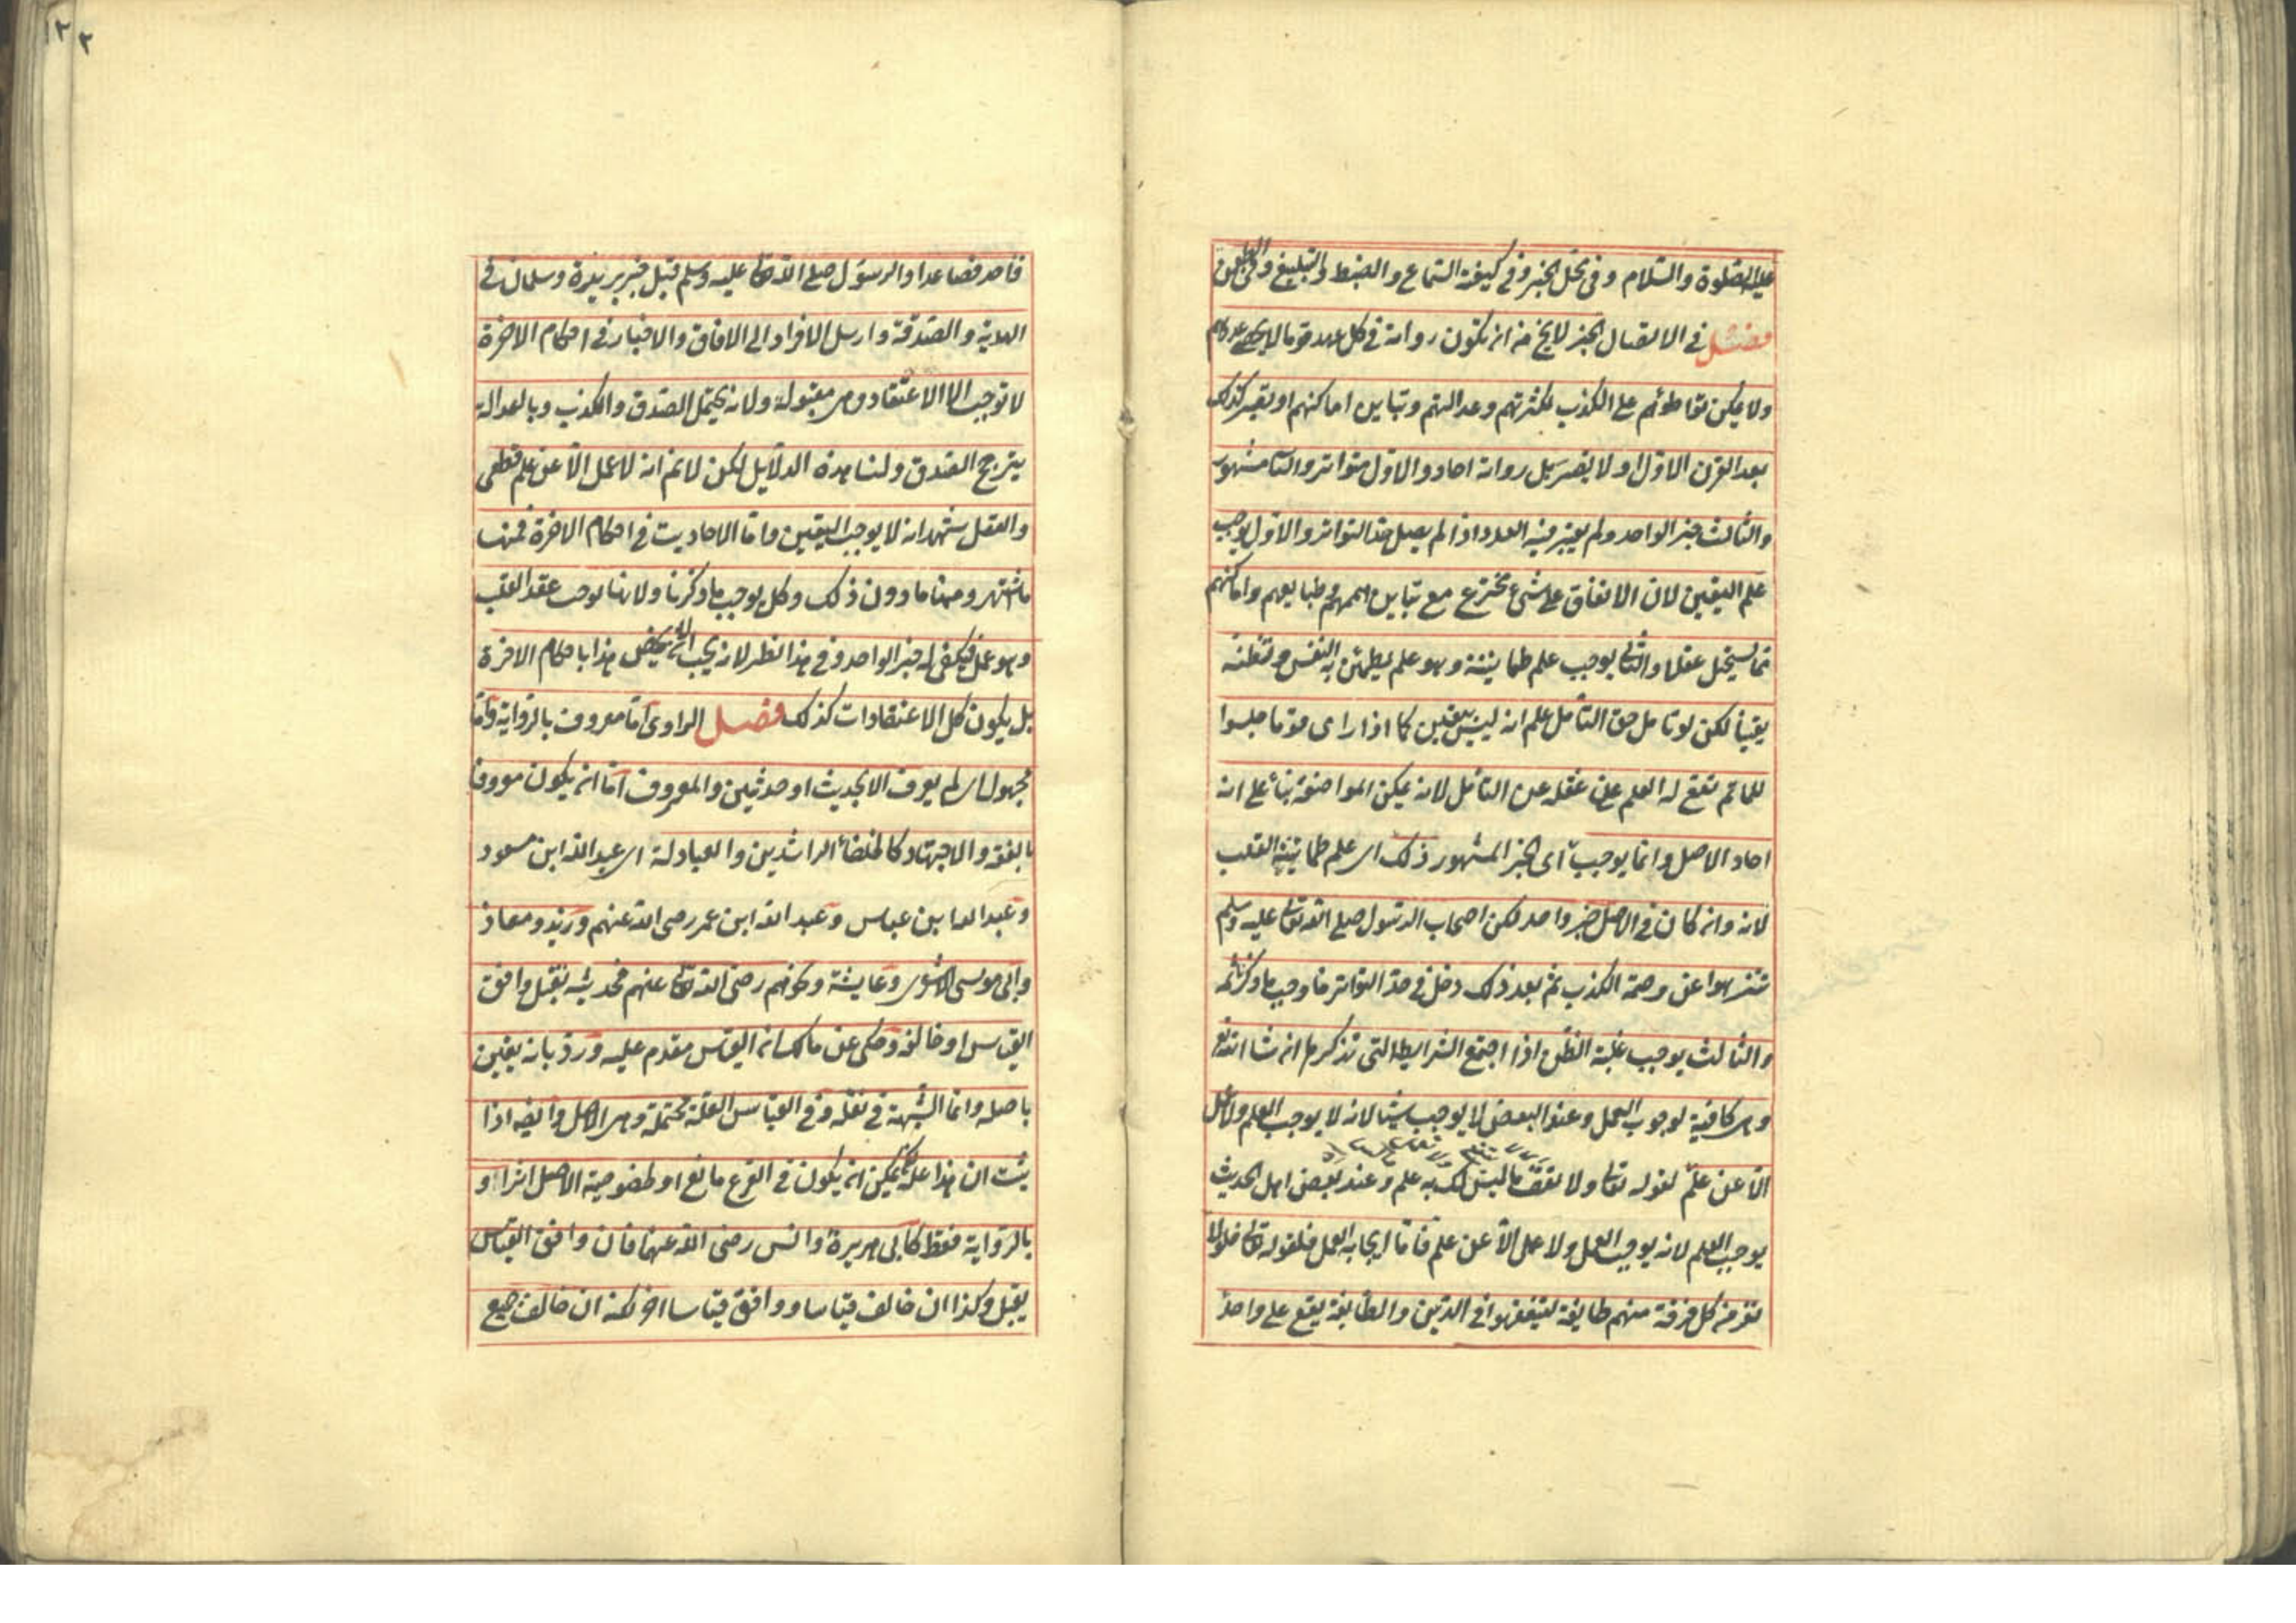 عليه الصلوة والسلام وفى محل الخبر وفى كيفية السماع والضبط والتبليغ وفى الطعن
فصل فى الاتصال الخبر لا يخ من ان تكون رواته فى كل عهد قوما لا يحصى عددهم
ولا يمكن تواطؤهم على الكذب لكثرتهم وعدالتهم وتباين اماكنهم او يصير كذلك
بعد القرن الاول او لا يصير بل رواته احاد والاول متواتر والثانى مشهور
والثالث خبر الواحد ولم يعتبر فيه العدد اذا لم يصل حد التواتر والاول يوجب
علم اليقين لان الاتفاق على شئ مخترع مع تباين هممهم وطبايعهم واماكنهم
مما يستحيل عقلا والثانى يوجب علم طمانينة وهو علم يطمئن به النفس وتظنه
يقينا لكن لو تامل حق التأمل علم انه ليس بيقين كما اذا راى قوما جلسوا
للماتم تقع له العلم عن غفله عن التأمل لانه يمكن المواضعة بناء على انه
احاد الاصل وانما يوجب اى الخبر المشهور ذلك اى علم طمانينة القلب
لانه وان كان فى الاصل خبر واحد لكن اصحاب الرسول صلى الله تعالى عليه وسلم
تنزهوا عن وصمة الكذب ثم بعد ذلك دخل فى حد التواتر فاوجب ما ذكرنا ثمه
والثالث يوجب غلبة الظن اذا اجتمع الشرايط التى نذكرها ان شا الله تع
وهى كافية لوجوب العمل وعند البعض لا يوجب شيئا لانه لا يوجب العلم ولا عمل
الا عن علم لقوله تعالى ولا تقف ما ليس لك به علم وعند بعض اهل الحديث
يوجب العلم لانه يوجب العمل ولا عمل الا عن علم فاما ايجابه العمل فلقوله تعالى فلولا
نفر من كل فرقة منهم طايفة ليتفقهوا فى الدين والطايفة يقع على واحد
فاحد فصاعدا والرسول صلى الله تعالى عليه وسلم قبل خبر بريرة وسلمان فى
الهدية والصدقة وارسل الافراد الى الافاق والاخبار فى احكام الاخرة
لا توجب الا الاعتقاد وهى مقبولة ولانه يحتمل الصدق والكذب وبالعدالة
يترجح الصدق ولنا هذه الدلايل لكن لا نم انه لا عمل الا عن علم قطعى
والعقل يشهد انه لا يوجب اليقين واما الاحاديث فى احكام الاخرة فمنها
ما اشتهر ومنها ما دون ذلك وكل يوجب ما ذكرنا ولانها توجب عقد القلب
وهو عمل فيكفى له خبر الواحد وفى هذا نظر لانه يجب ان لا يختص هذا باحكام الاخرة
بل يكون كل الاعتقادات كذلك فصل الراوى اما معروف بالرواية واما
مجهول اى لم يعرف الا بحديث او حديثين والمعروف اما ان يكون معروفا
بالفقه والاجتهاد كالخلفاء الراشدين والعبادلة اى عبد الله ابن مسعود
وعبد الله ابن عباس وعبد الله ابن عمر رضى الله عنهم وزيد ومعاذ
وابى موسى الاشعرى وعايشة ونحوهم رضى الله تعالى عنهم فحديثه يقبل وافق
القياس او خالفه وحكى عن مالك ان القياس مقدم عليه ورد بانه يقين
باصله وانما الشبهة فى نقله وفى القياس العلة محتملة وهى الاصل وايضه اذا
ثبت ان هذا علة يمكن ان يكون فى الفرع مانع او لخصوصية الاصل اثرا او
بالرواية فقط كابى هريرة وانس رضى الله عنهما فان وافق القياس
يقبل وكذا ان خالف قياسا ووافق قياسا اخر لكنه ان خالف جميع